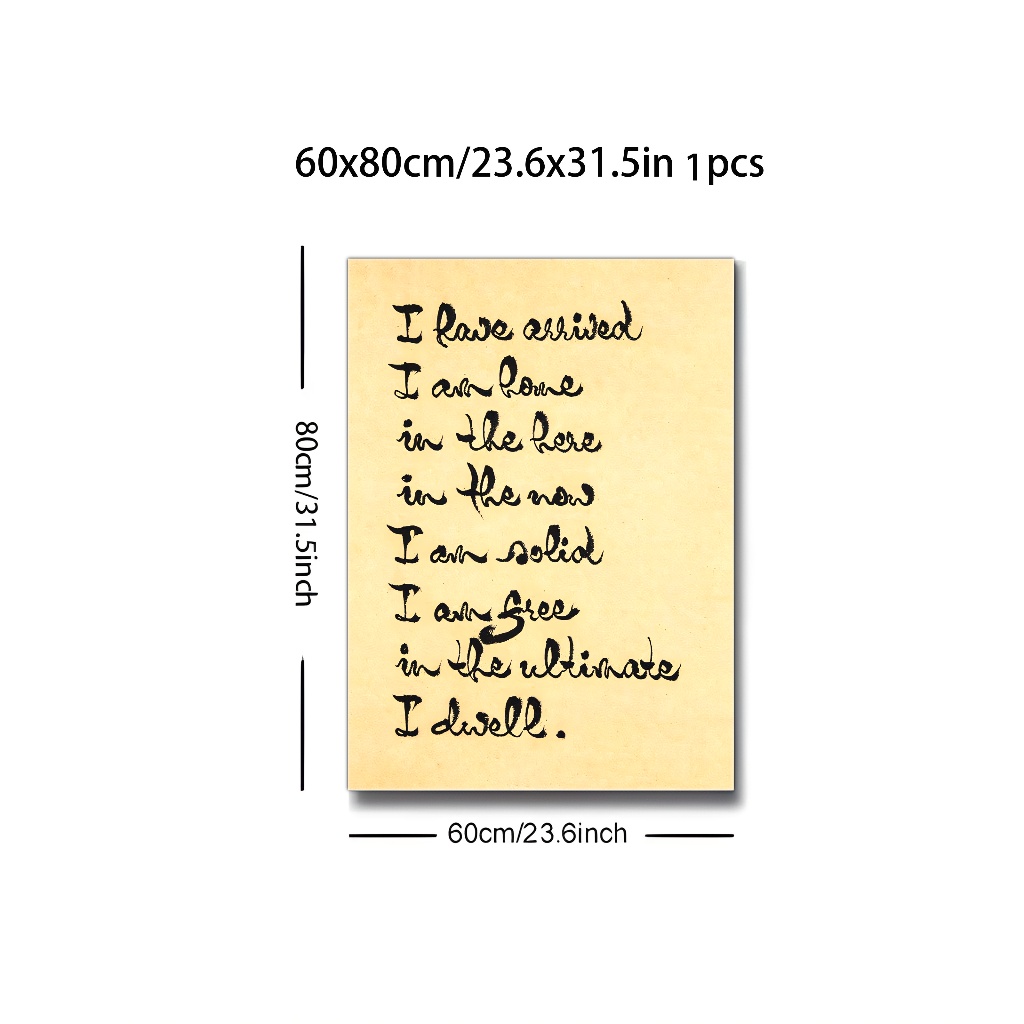 60x80cm/23.6x31.5in 1pcs
80cm/31.5inch
I have arrived
I am home
in the here
in the now
I am solid
I am free
in the ultimate
I dwell.
60cm/23.6inch